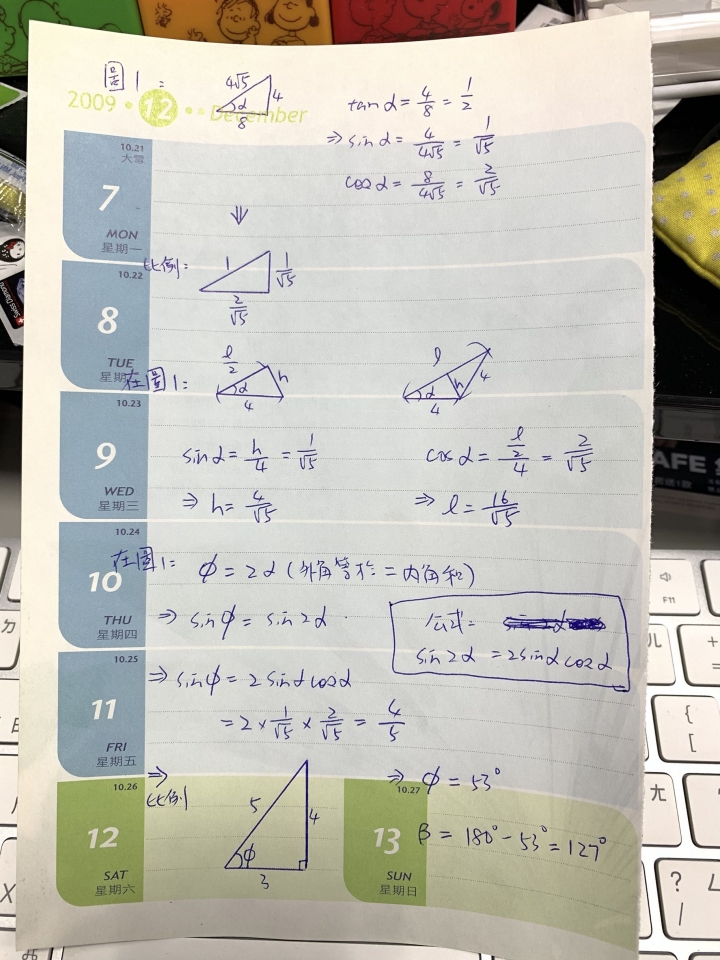 圖1:
4√5
4
α
8
2009 · 12 · · December
tan α = 4/8 = 1/2
⇒ sin α = 4/(4√5) = 1/√5
cos α = 8/(4√5) = 2/√5
10.21
大雪
7
MON
星期一
⇓
比例:
1
1/√5
2/√5
10.22
8
TUE
星期
在圖1:
l/2
h
α
4
l
h
4
α
4
10.23
9
WED
星期三
sin α = h/4 = 1/√5
⇒ h = 4/√5
cos α = (l/2)/4 = 2/√5
⇒ l = 16/√5
10.24
10
THU
星期四
在圖1:
φ = 2α (外角等於二內角和)
⇒ sin φ = sin 2α
公式:
sin 2α = 2 sin α cos α
10.25
11
FRI
星期五
⇒ sin φ = 2 sin α cos α
= 2 × 1/√5 × 2/√5 = 4/5
10.26
12
SAT
星期六
⇒
比例
5
4
φ
3
10.27
13
SUN
星期日
⇒ φ = 53°
β = 180° - 53° = 127°
AFE
F11
ㄅ
ㄦ
ㄤ
+
=
{
[
?
/
X
⌘
Swiss Diamond